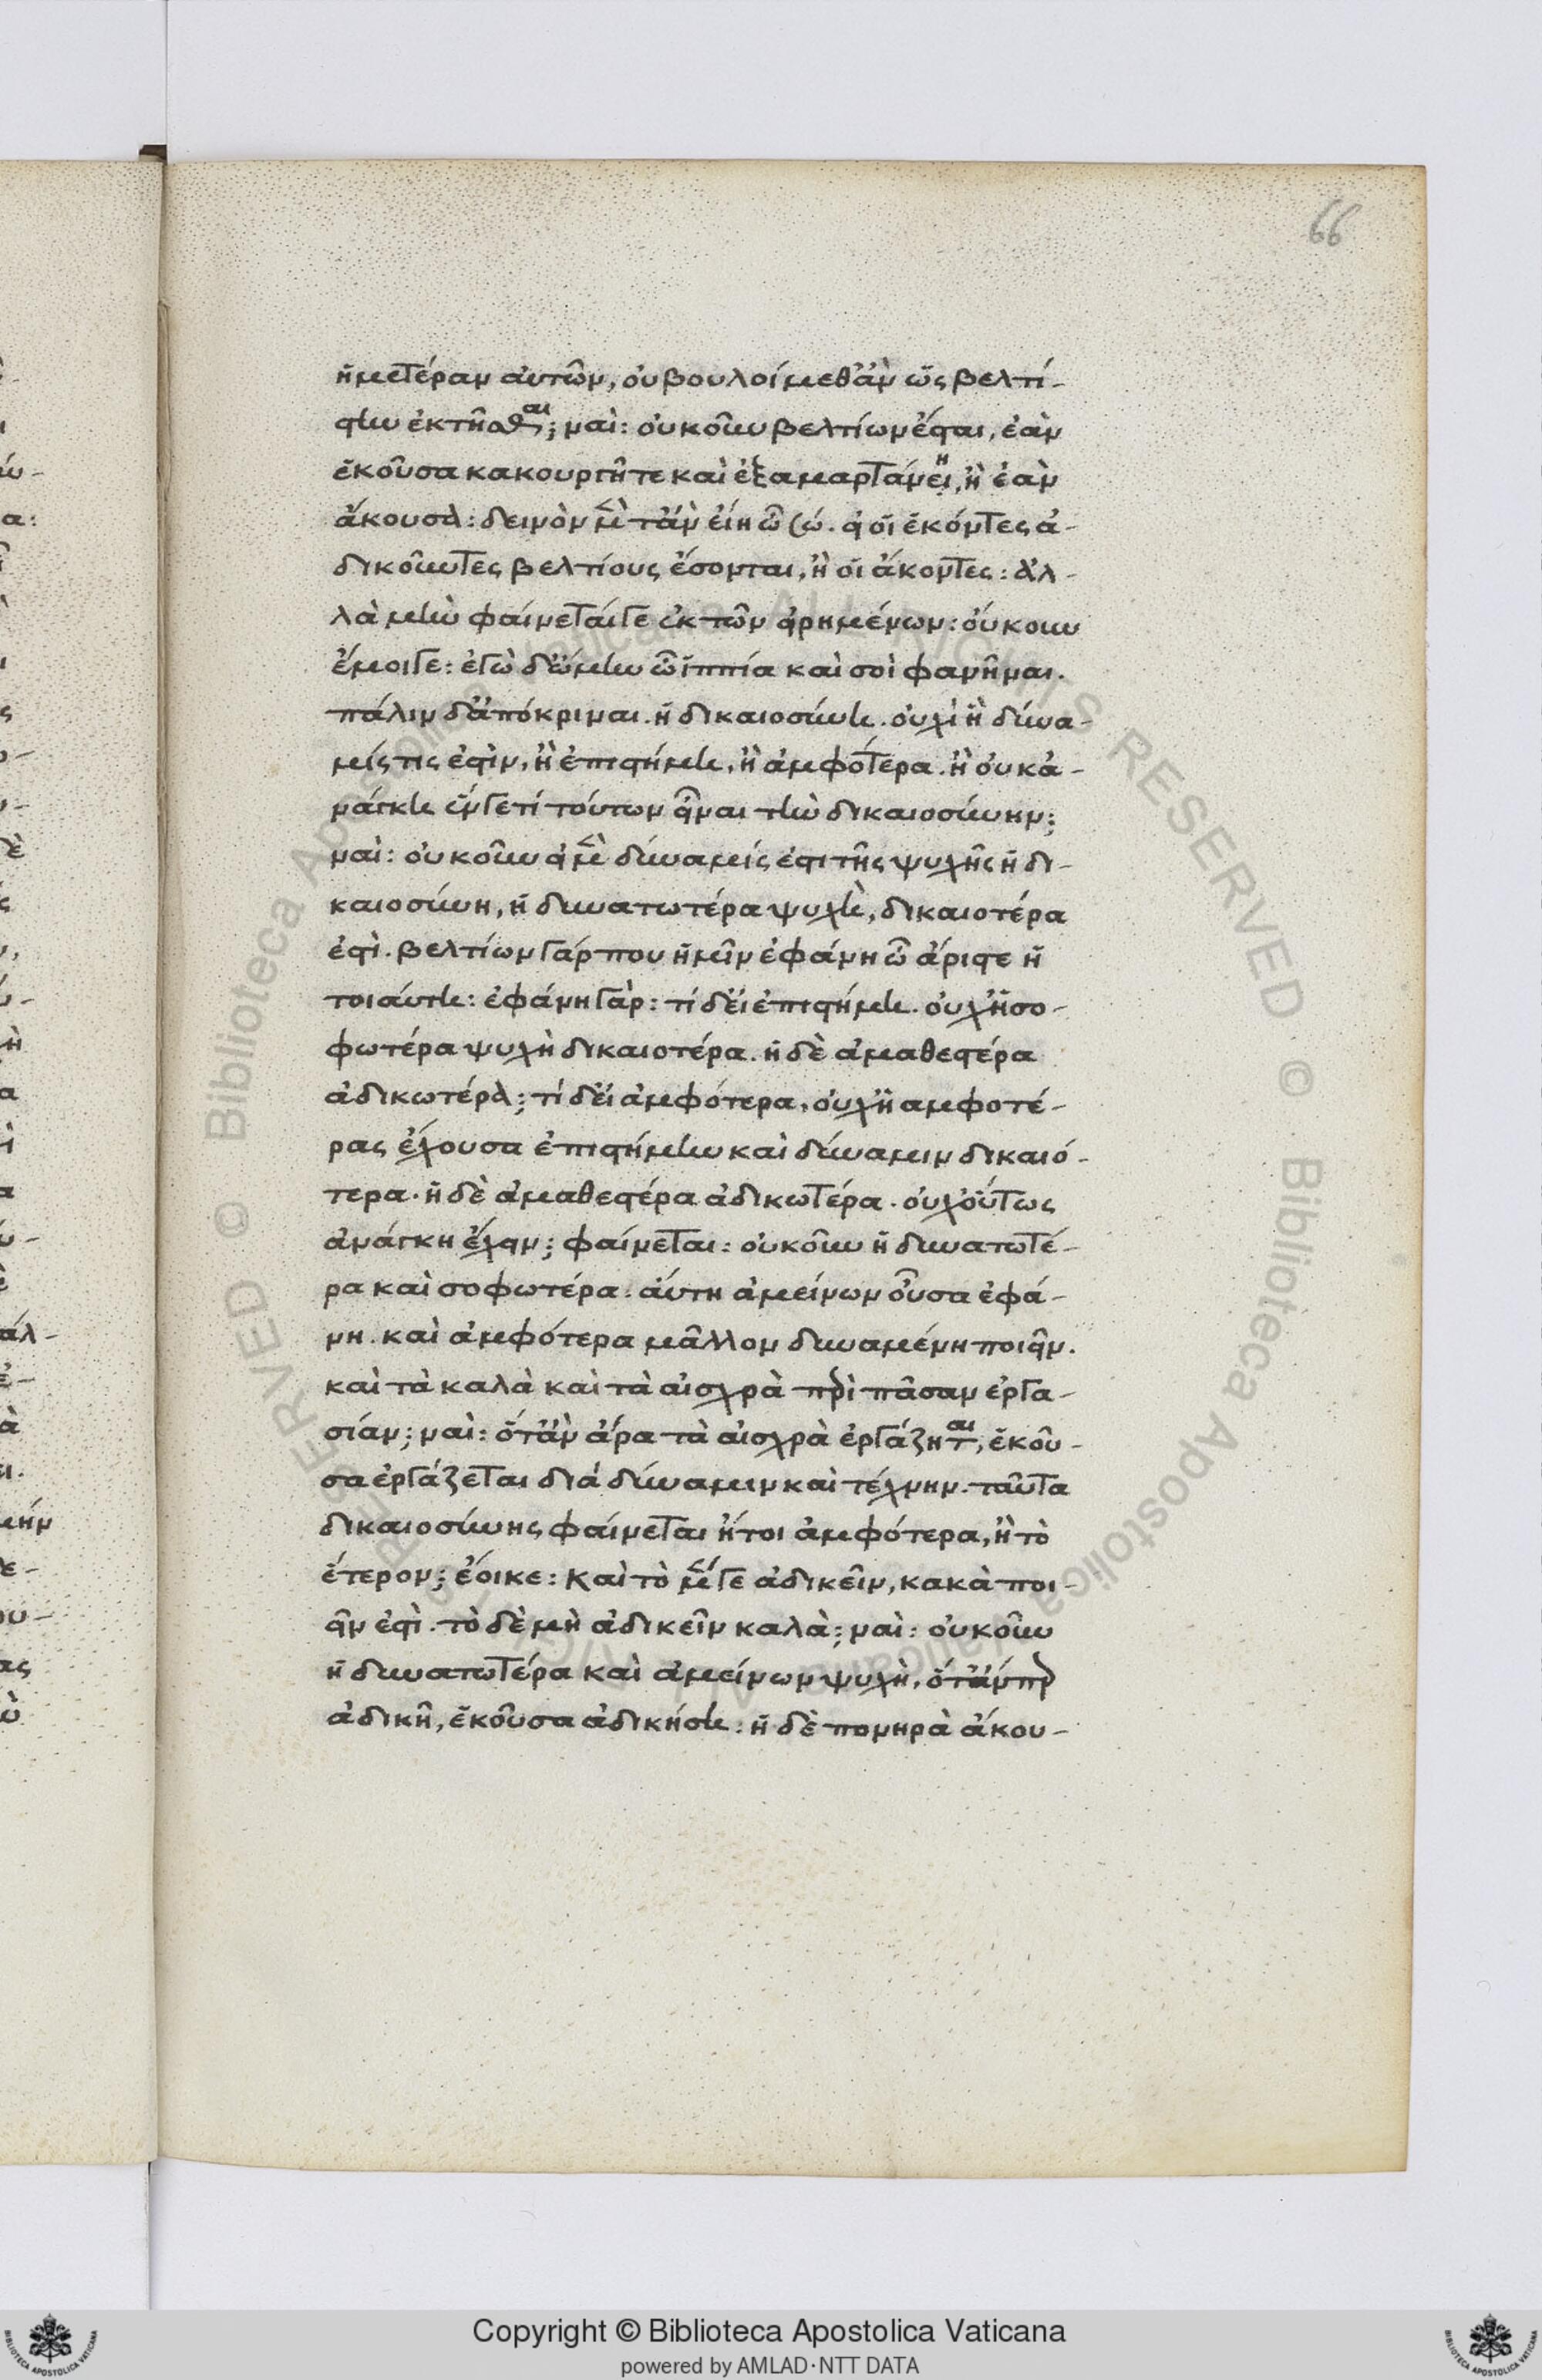 66
ἡμετέραν αὐτῶν, οὐ βουλοίμεθ' ἂν ὡς βελτί-
στην ἐκτῆσθαι; ναὶ: οὐκοῦν βελτίων ἔσται, ἐὰν
ἑκοῦσα κακουργῆ τε καὶ ἐξαμαρτάνει, ἢ ἐὰν
ἄκουσα: δεινὸν μὲν τἂν εἴη ὦ σώ. εἰ οἱ ἑκόντες ἀ-
δικοῦντες βελτίους ἔσονται, ἢ οἱ ἄκοντες: ἀλ-
λὰ μὴν φαίνεταί γε ἐκ τῶν εἰρημένων: οὔκουν
ἔμοιγε: ἐγὼ δ' ὤμην ὦ ἱππία καὶ σοὶ φανῆναι.
πάλιν δ' ἀπόκριναι. ἡ δικαιοσύνη. οὐχὶ ἢ δύνα-
μίς τις ἐστὶν, ἢ ἐπιστήμη, ἢ ἀμφότερα. ἢ οὐκ ἀ-
νάγκη ἕν γέ τι τούτων εἶναι τὴν δικαιοσύνην;
ναὶ: οὐκοῦν εἰ μὲν δύναμίς ἐστι τῆς ψυχῆς ἡ δι-
καιοσύνη, ἡ δυνατωτέρα ψυχὴ, δικαιοτέρα
ἐστὶ. βελτίων γάρ που ἡμῖν ἐφάνη ὦ ἄριστε ἡ
τοιαύτη: ἐφάνη γὰρ: τί δ' εἰ ἐπιστήμη. οὐχ' ἡ σο-
φωτέρα ψυχὴ δικαιοτέρα. ἡ δὲ ἀμαθεστέρα
ἀδικωτέρα; τί δ' εἰ ἀμφότερα, οὐχ' ἡ ἀμφοτέ-
ρας ἔχουσα ἐπιστήμην καὶ δύναμιν δικαιό-
τερα. ἡ δὲ ἀμαθεστέρα ἀδικωτέρα. οὐχ' οὕτως
ἀνάγκη ἔχειν; φαίνεται: οὐκοῦν ἡ δυνατωτέ-
ρα καὶ σοφωτέρα. αὕτη ἀμείνων οὖσα ἐφά-
νη. καὶ ἀμφότερα μᾶλλον δυναμένη ποιεῖν.
καὶ τὰ καλὰ καὶ τὰ αἰσχρὰ περὶ πᾶσαν ἐργα-
σίαν; ναὶ: ὅταν ἄρα τὰ αἰσχρὰ ἐργάζηται, ἑκοῦ-
σα ἐργάζεται διὰ δύναμιν καὶ τέχνην. ταῦτα
δικαιοσύνης φαίνεται ἤτοι ἀμφότερα, ἢ τὸ
ἕτερον; ἔοικε: καὶ τὸ μέν γε ἀδικεῖν, κακὰ ποι-
εῖν ἐστὶ. τὸ δὲ μὴ ἀδικεῖν καλὰ; ναὶ: οὐκοῦν
ἡ δυνατωτέρα καὶ ἀμείνων ψυχὴ, ὅτάν περ
ἀδικῆ, ἑκοῦσα ἀδικήση: ἡ δὲ πονηρὰ ἄκου-
Copyright © Biblioteca Apostolica Vaticana
powered by AMLAD·NTT DATA